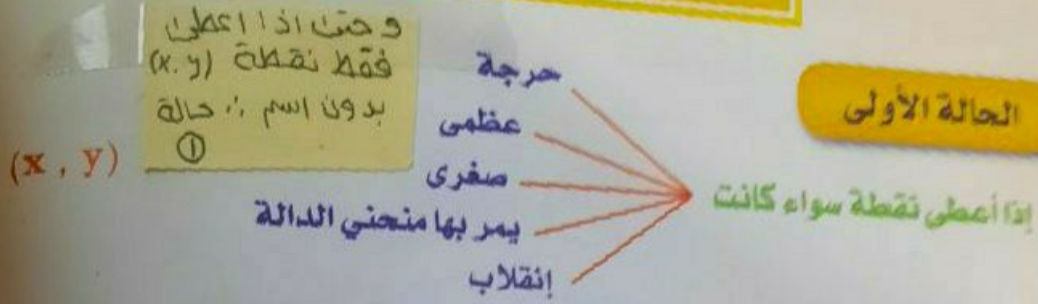 الحالة الأولى
إذا أعطى نقطة سواء كانت
حرجة
عظمى
صغرى
يمر بها منحني الدالة
إنقلاب
وحتى اذا اعطى
فقط نقطة (x.y)
بدون اسم ∴ حالة
①
(x , y)